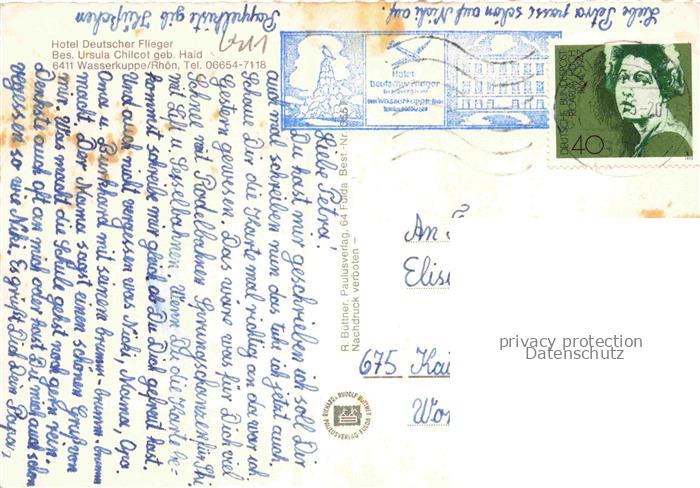 Hotel Deutscher Flieger
Bes. Ursula Chilcot geb. Haid
6411 Wasserkuppe/Rhön, Tel. 06654-7118
Liebe Petra passe schön auf Nicki auf.
Liebe Petra!
Du hast mir geschrieben ich soll Dir
auch mal schreiben nun das tuh ich jetzt auch.
Schau Dir die Karte mal richtig an da war ich
Gestern gewesen. Das wäre was für Dich viel
Schnee mit Rodelbahnen Sprungschanzen für Shi
mit Lift u Sesselbahnen. Wenn Du die Karte be-
kommst schreibe mir gleich ob Du Dich gefreut hast.
Und auch nicht vergessen was Nicki, Mama, Opa
Oma u. Burkhard mit seinem brumm-brumm-brumm
macht. Der Mama sagst einen schönen Gruß von
mir. Was macht die Schule gehst noch gern rein.
Denkste auch oft an mich oder hast Du mich auch schon
vergessen so wie Nicki. Es grüßt Dich Dein Papa,
R. Büttner, Paulusverlag, 64 Fulda Best.-Nr.
Nachdruck verboten –
Hotel
Deutscher Flieger
DEUTSCHE BUNDESPOST
40
An
675 Kai
privacy protection
Datenschutz
RICHARD & RUDOLF BÜTTNER
PAULUSVERLAG FULDA